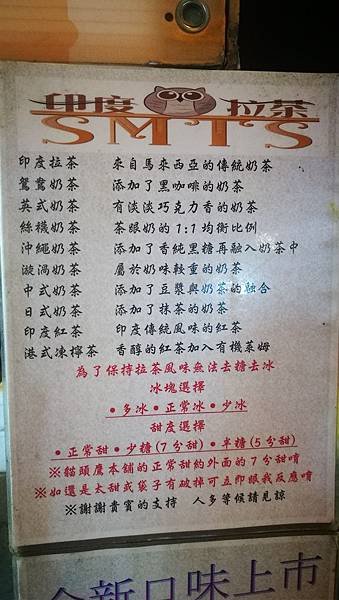 印度 拉茶
SMTS
印度拉茶 來自馬來西亞的傳統奶茶
鴛鴦奶茶 添加了黑咖啡的奶茶
英式奶茶 有淡淡巧克力香的奶茶
絲襪奶茶 茶眼奶的1:1均衡比例
沖繩奶茶 添加了香純黑糖再融入奶茶中
漩渦奶茶 屬於奶味較重的奶茶
中式奶茶 添加了豆漿與奶茶的融合
日式奶茶 添加了抹茶的奶茶
印度紅茶 印度傳統風味的紅茶
港式凍檸茶 香醇的紅茶加入有機萊姆
為了保持拉茶風味無法去糖去冰
冰塊選擇
•多冰•正常冰•少冰
甜度選擇
•正常甜•少糖(7分甜)•半糖(5分甜)
※貓頭鷹本舖的正常甜約外面的7分甜唷
※如還是太甜或袋子有破掉可立即跟我反應唷
※謝謝貴賓的支持 人多等候請見諒
全新口味上市